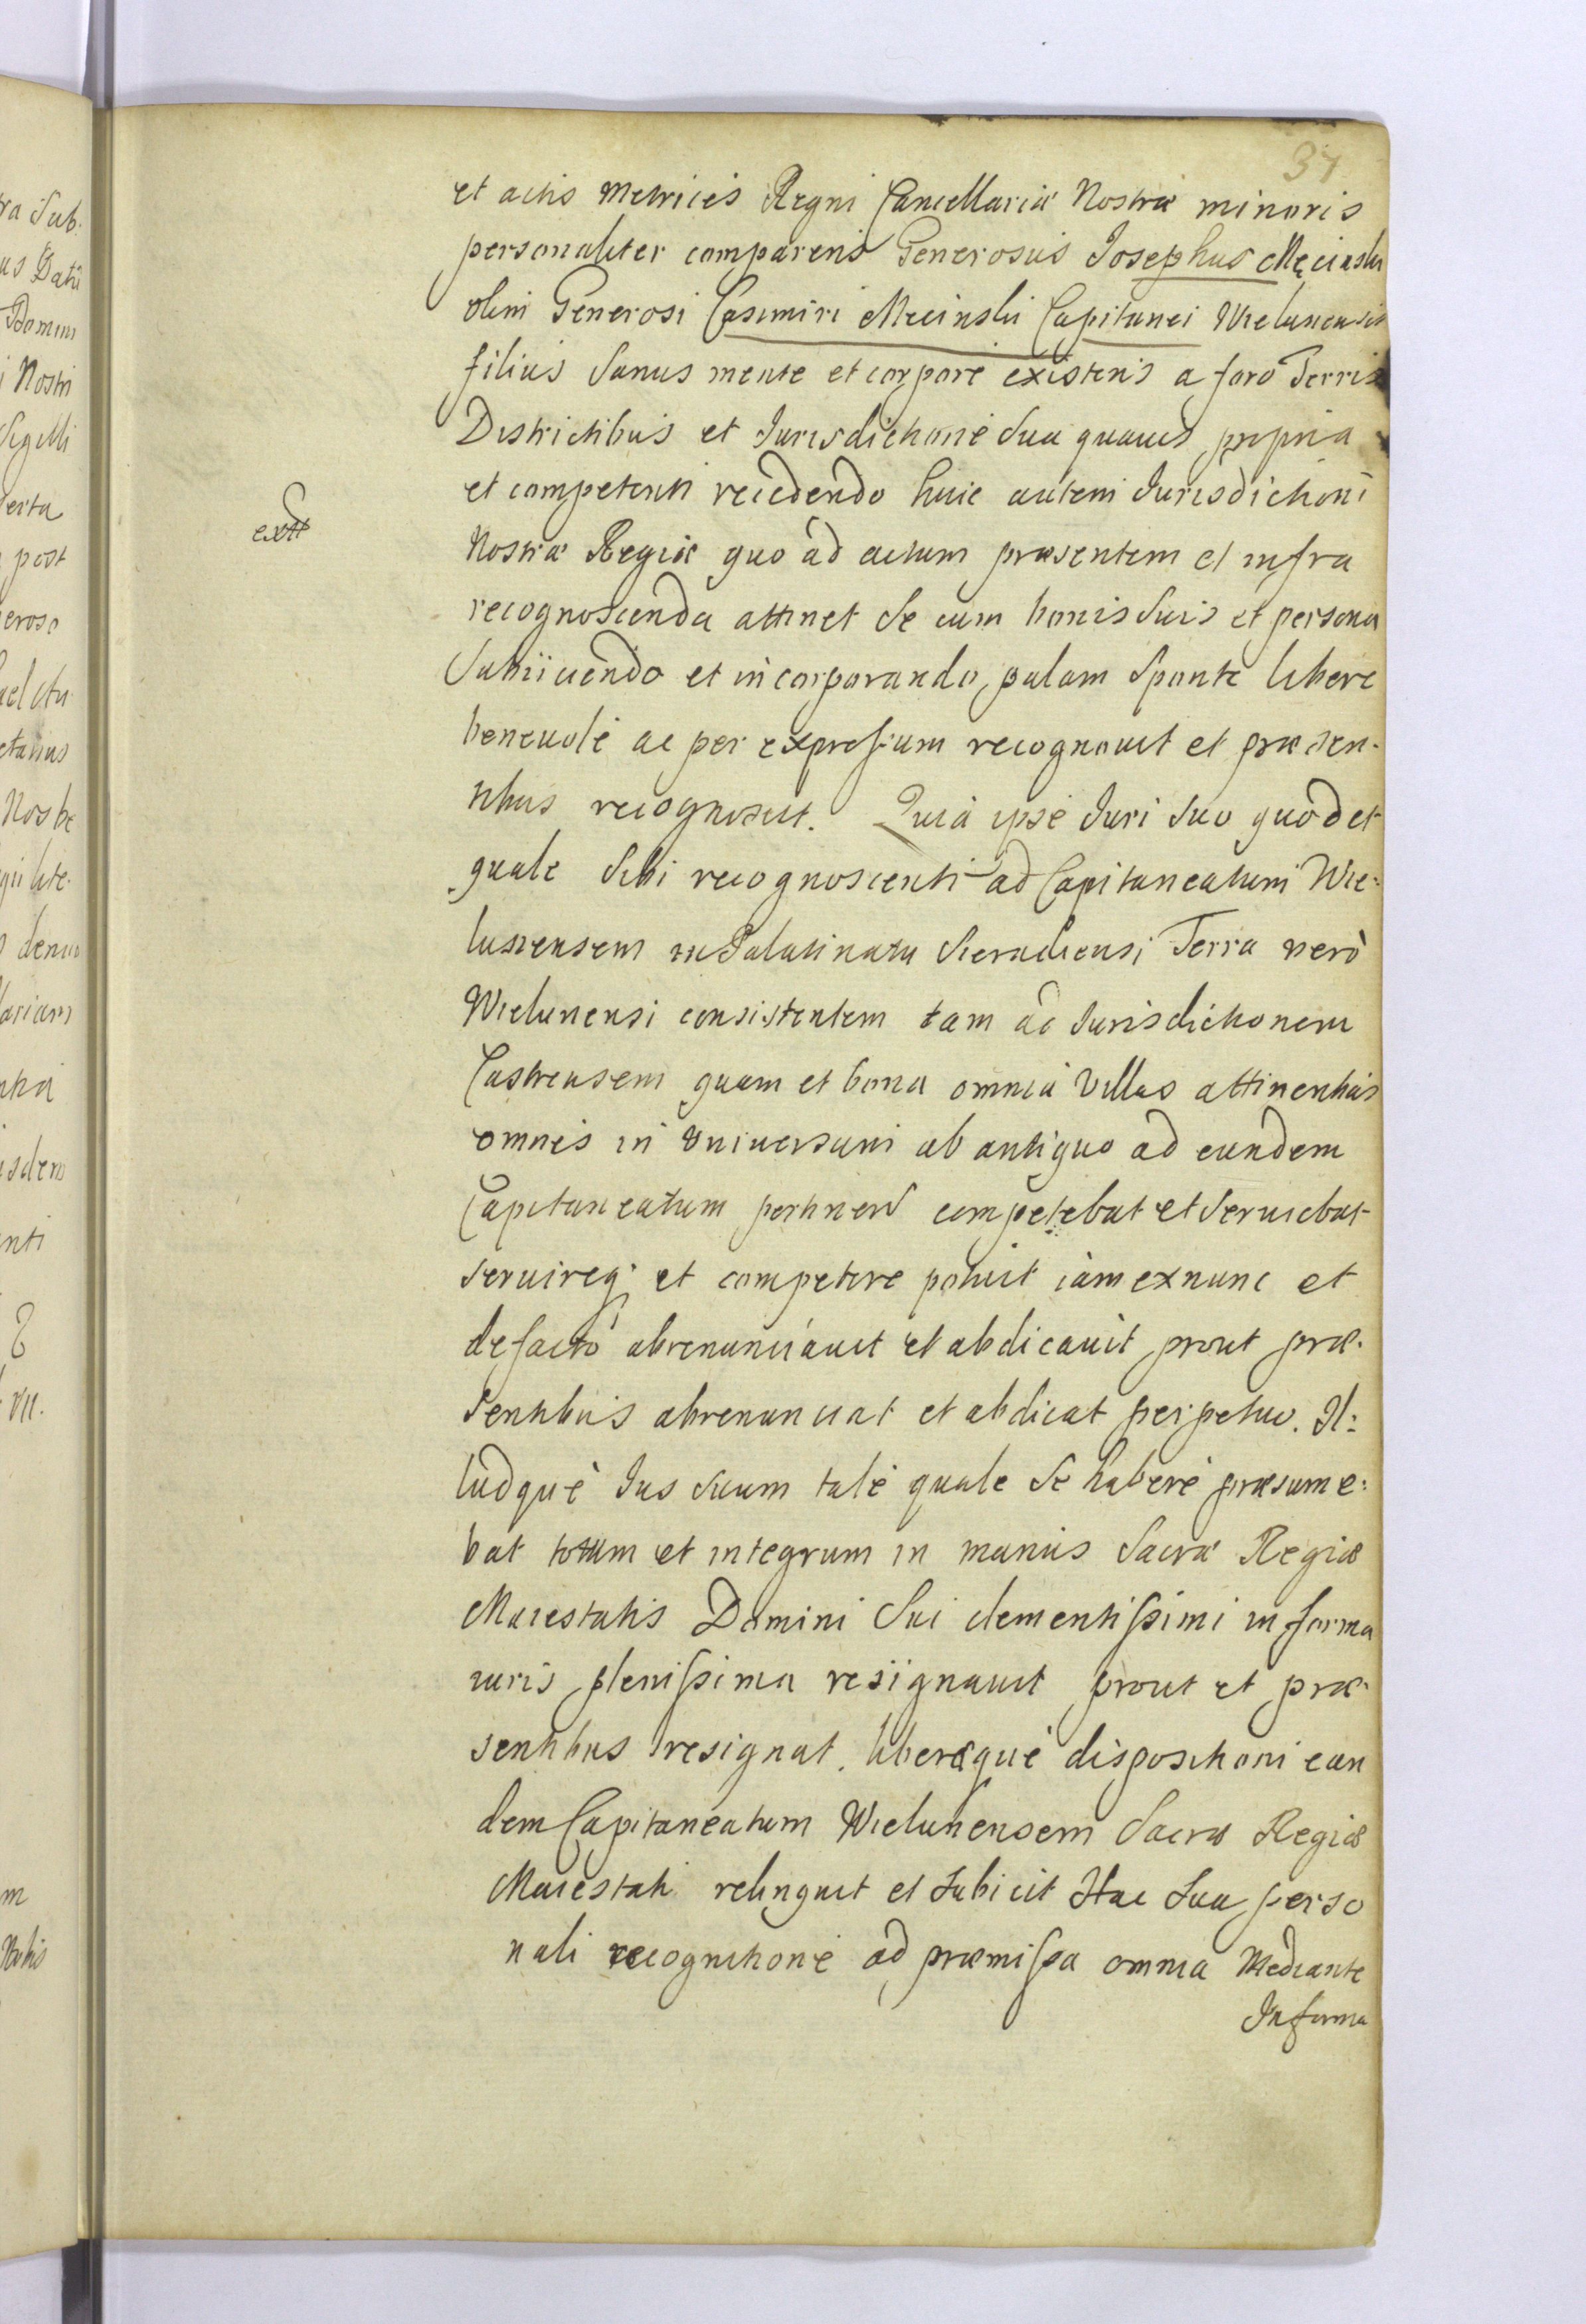 37
et actis Metrices Regni Cancellariæ Nostræ minoris
personaliter comparens Generosus Josephus Męcinski
olim Generosi Casimiri Mecinski Capitanei Wielunensis
filius Sanus mente et corpore existens a foro Terris
Districtibus et Jurisdictione Sua quavis propria
et competenti recedendo huic autem Jurisdictioni
extt
Nostræ Regiæ quo ad actum præsentem et infra
recognoscenda attinet Se cum bonis Suis et persona
Subiiciendo et incorporando, palam Sponte libere
benevole ac per expressum recognovit et præsen-
tibus recognoscit. Quia ipse Juri Suo quod et
quale Sibi recognoscenti ad Capitaneatum Wie:
lunensem in Palatinatu Sieradiensi Terra verò
Wielunensi consistentem tam ad Jurisdictionem
Castrensem quam et bona omnia Villas attinentias
omnes in Universum ab antiquo ad eundem
Capitaneatum pertinen competebat et Serviebat
servireq; et competere potuit iam ex nunc et
de facto abrenunciavit et abdicavit prout præ-
sentibus abrenunciat et abdicat perpetuo. Il:
ludque Jus Suum tale quale Se habere præsume:
bat totum et integrum in manus Sacræ Regiæ
Maiestatis Domini Sui clementissimi in forma
iuris plenissima resignavit prout et præ-
sentibus resignat. liberæque dispositioni eun
dem Capitaneatum Wielunensem Sacræ Regiæ
Maiestati relinquit et Subicit Hac Sua perso
nali recognitione ad præmissa omnia Mediante
In forma
ra Sub.
us Datū
Domini
i Nostri
Sigilli
post
Nostræ
denuo
lariam
isdem
enti
VII.
m
Nobis